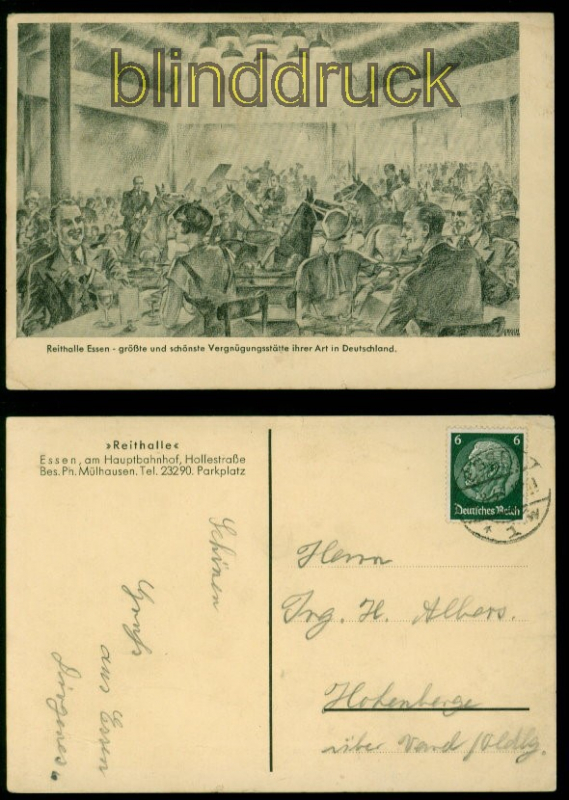 blinddruck
Reithalle Essen - größte und schönste Vergnügungsstätte ihrer Art in Deutschland.
»Reithalle«
Essen, am Hauptbahnhof, Hollestraße
Bes. Ph. Mülhausen. Tel. 23290. Parkplatz
6 6
Deutsches Reich
Schönen
Gruß
aus Essen
Herrn
Ing. H. Albers.
Hohenberge
über Varel /Oldbg.